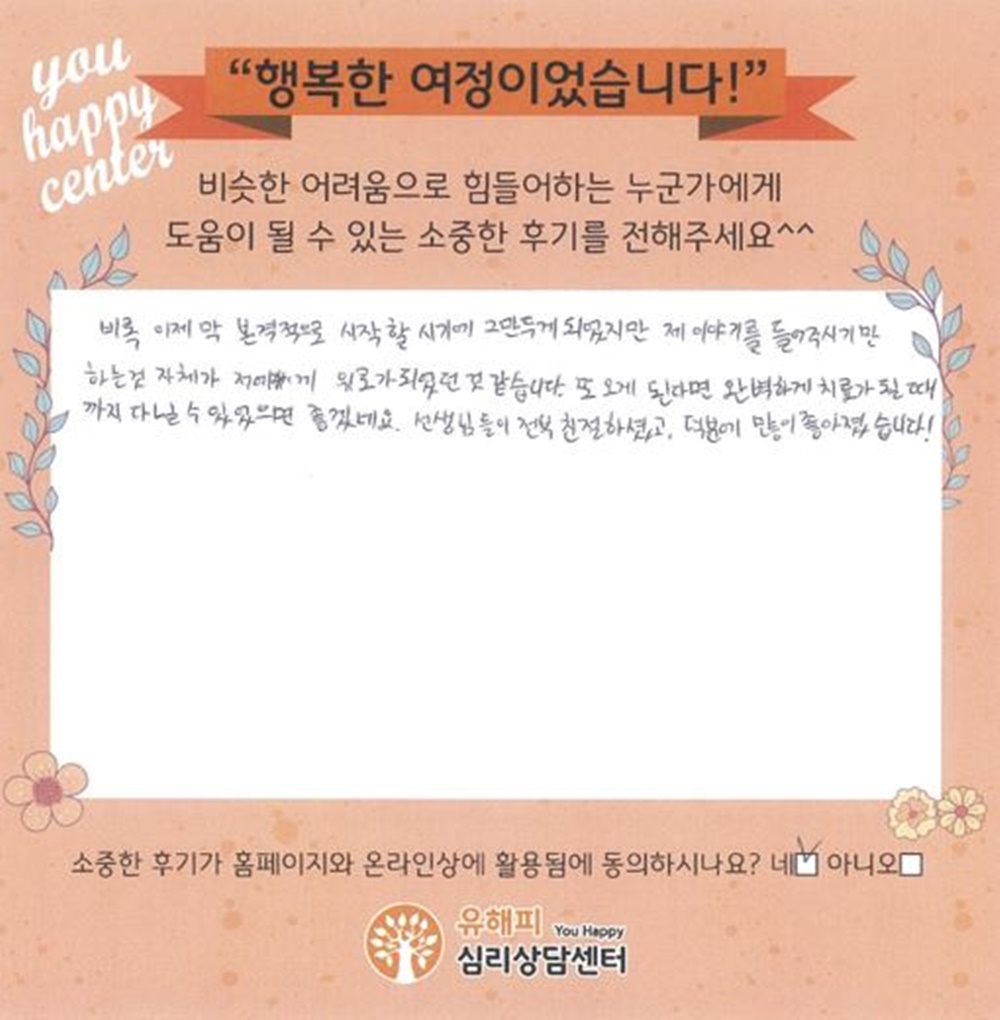 you
happy
center
“행복한 여정이었습니다!”
비슷한 어려움으로 힘들어하는 누군가에게
도움이 될 수 있는 소중한 후기를 전해주세요^^
비록 이제 막 본격적으로 시작할 시기에 그만두게 되었지만 제 이야기를 들어주시기만
하는것 자체가 저에게 위로가 되었던 것 같습니다. 또 오게 된다면 완벽하게 치료가 될 때
까지 다닐 수 있었으면 좋겠네요. 선생님들이 전부 친절하셨고, 덕분에 많이 좋아졌습니다!
소중한 후기가 홈페이지와 온라인상에 활용됨에 동의하시나요? 네 아니오
유해피 You Happy
심리상담센터